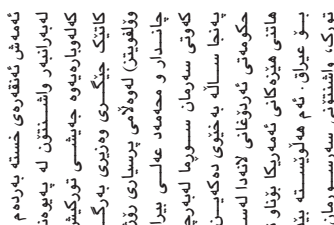 ئەمەش ئەنقەرەی خستە بەردەم
لەبەرانبەر واشنتۆن لە پەیوەند
کەلوپارەیەوە جەیشی تورکیش
کاتێک جێگری وەزیری بەرگ
وولفویتز) لەوەڵامی پرسیاری رۆژ
چاندار و محەمەد عەلی بیرا
کەوتی سەرمان سورما لەبەرچ
پەنجا ساڵە بەختێوی دەکەین
حکومەتی ئەردۆغانی لانەدا لەسە
هاتنی هێزەکانی ئەمەریکا بۆناو
بۆ عێراق. ئەم هەڵوێستە بێ
تورک واشنتنی سەرسوڕمان